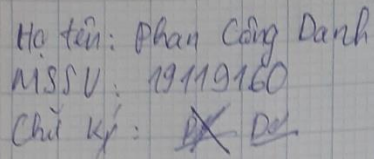 Họ tên: Phan Công Danh
MSSV: 19119160
Chữ ký: